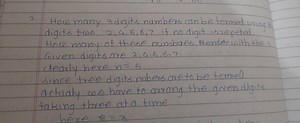 2. How many 3 digits numbers can be formed using
digits two 2,4,5,6,7 if no digit is repetal
How many of these numbers
Given digits are 2,4,5,6,7
clearly here n = 5
since three digits nobers are to be formed
actualy we have to arrang the given digits
taking three at a time
here